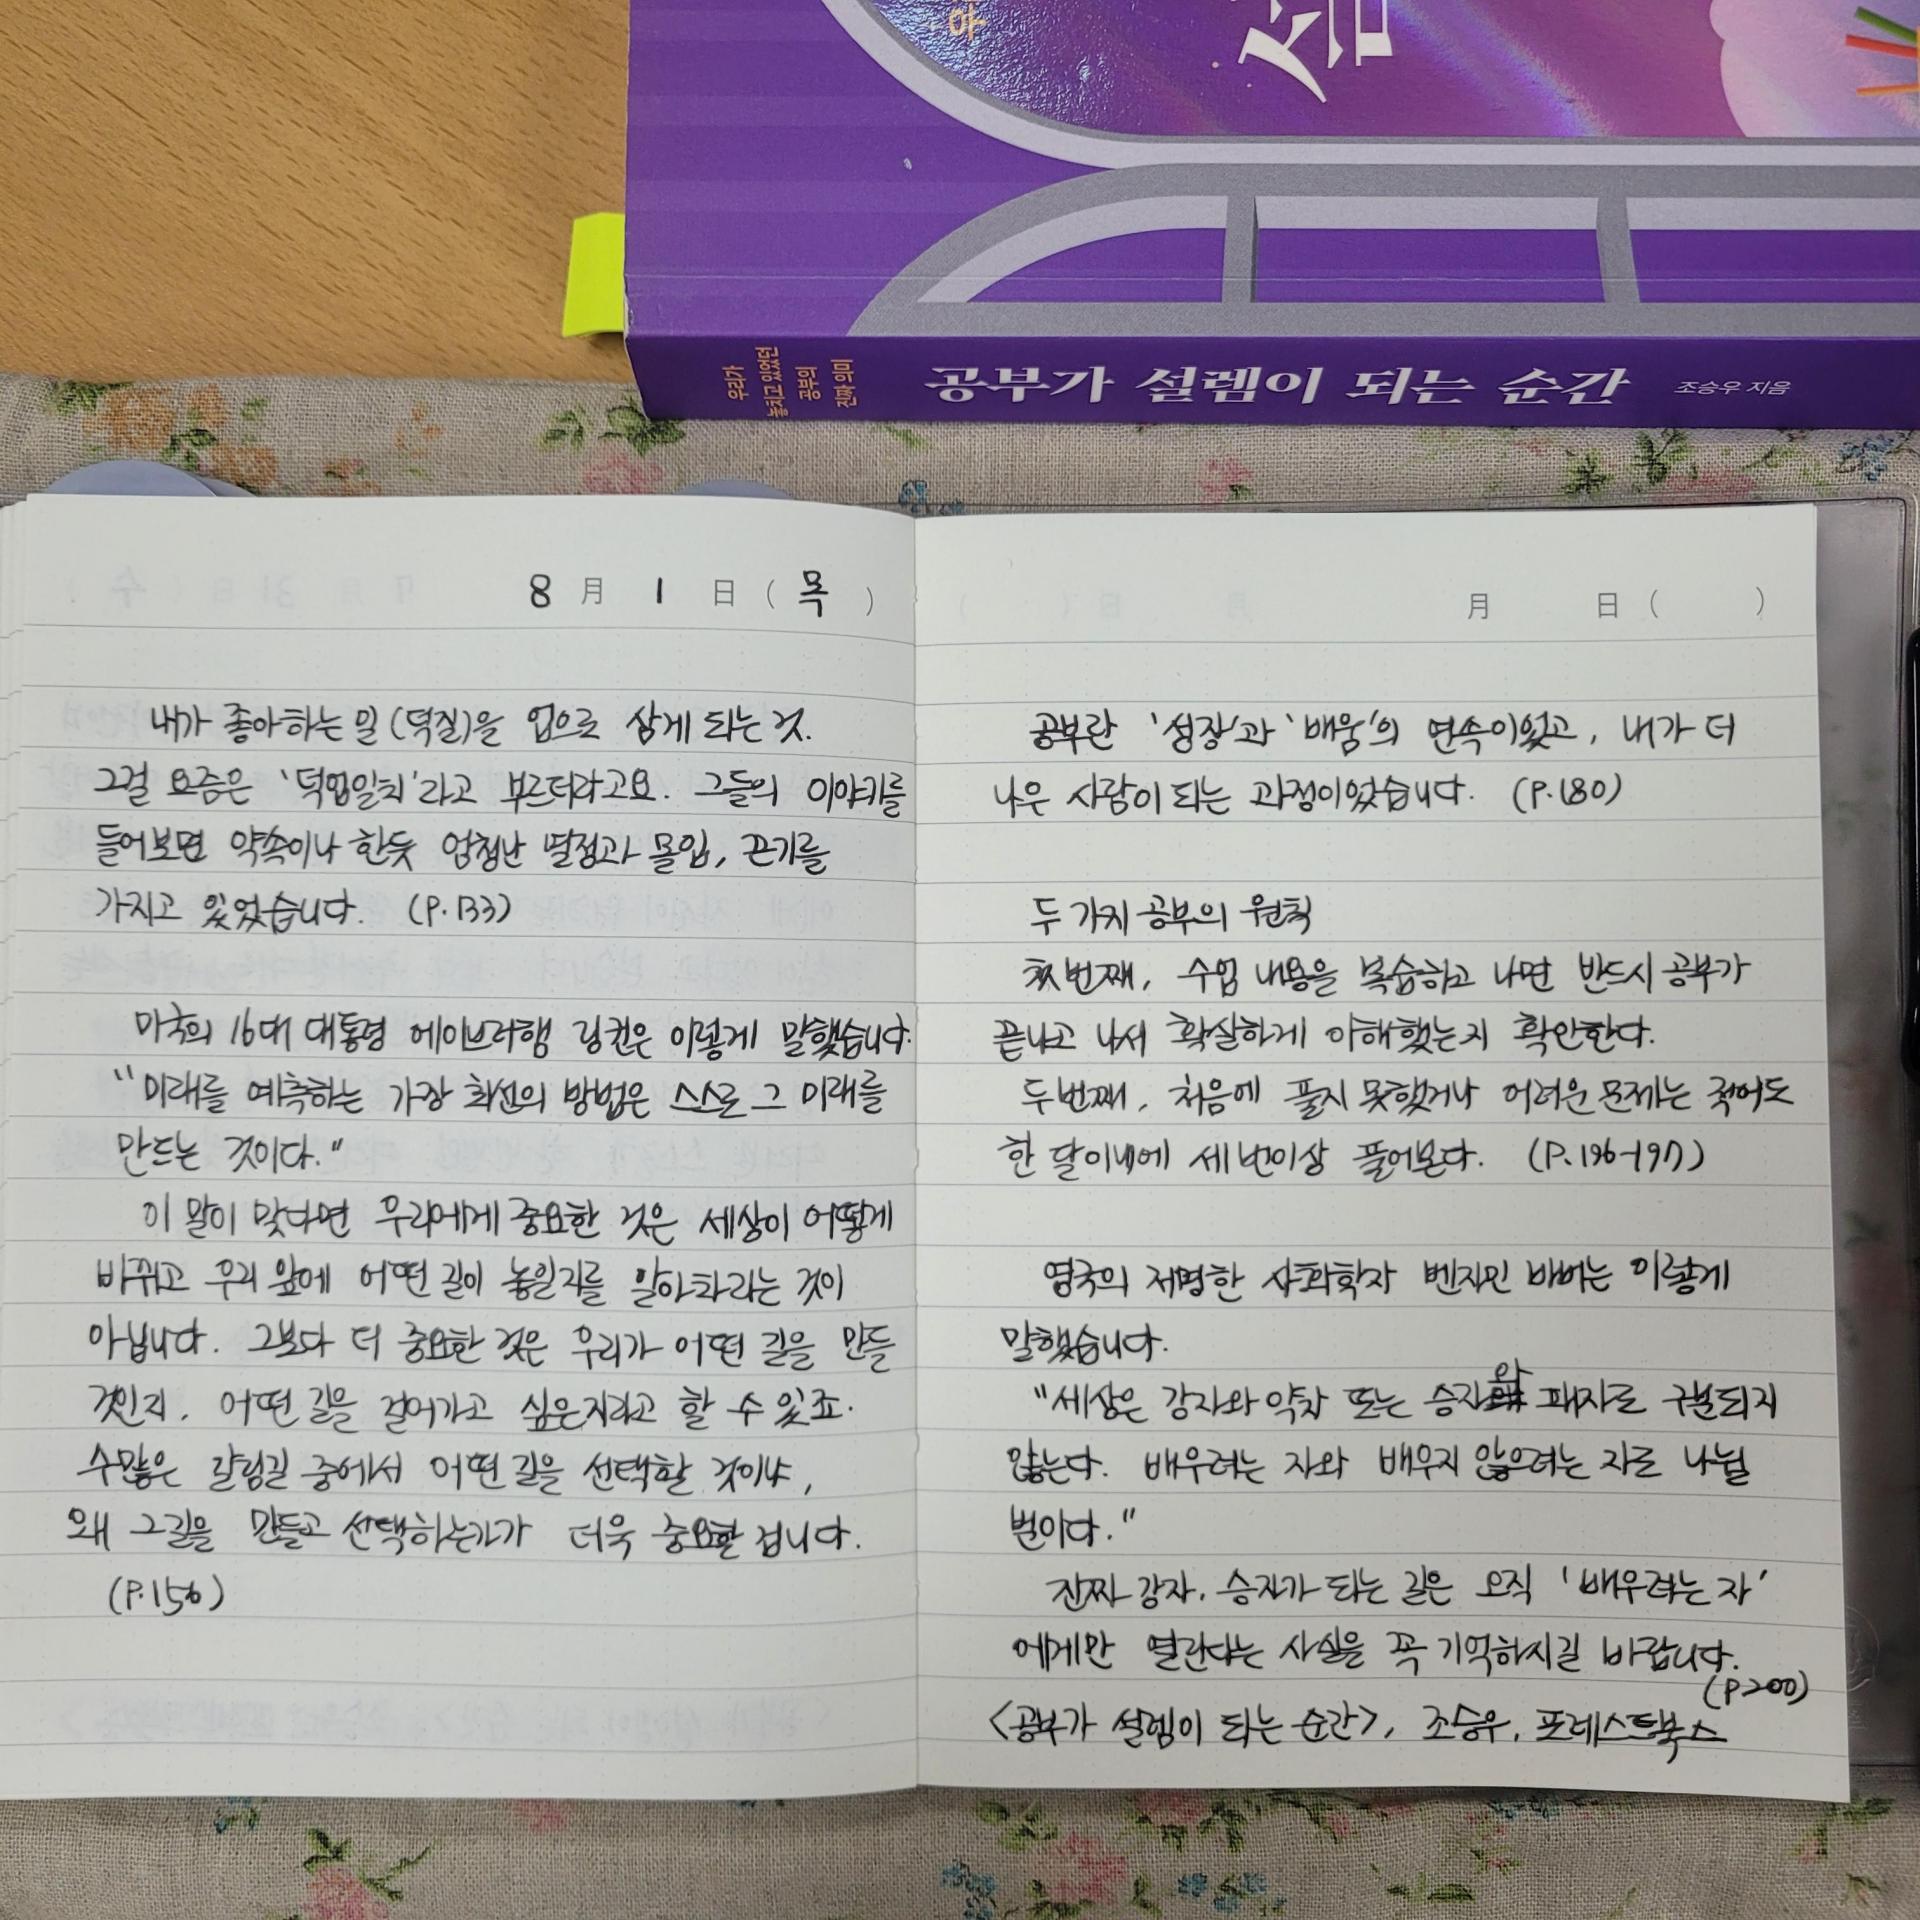 야
설
우리가
놓치고 있었던
공부의
진짜 의미
공부가 설렘이 되는 순간 조승우 지음
8 月 1 日 (목)
내가 좋아하는 일(덕질)을 업으로 삼게 되는 것.
그걸 요즘은 '덕업일치'라고 부르더라고요. 그들의 이야기를
들어보면 약속이나 한듯 엄청난 열정과 몰입, 끈기를
가지고 있었습니다. (P.133)
미국의 16대 대통령 에이브러햄 링컨은 이렇게 말했습니다.
"미래를 예측하는 가장 최선의 방법은 스스로 그 미래를
만드는 것이다."
이 말이 맞다면 우리에게 중요한 것은 세상이 어떻게
바뀌고 우리 앞에 어떤 길이 놓일지를 알아차리는 것이
아닙니다. 그보다 더 중요한 것은 우리가 어떤 길을 만들
것인지, 어떤 길을 걸어가고 싶은지라고 할 수 있죠.
수많은 갈림길 중에서 어떤 길을 선택할 것이냐,
왜 그 길을 만들고 선택하는가가 더욱 중요할 겁니다.
(P.156)
月 日 ( )
공부란 '성장'과 '배움'의 연속이었고, 내가 더
나은 사람이 되는 과정이었습니다. (P.180)
두 가지 공부의 원칙
첫 번째, 수업 내용을 복습하고 나면 반드시 공부가
끝나고 나서 확실하게 이해했는지 확인한다.
두 번째, 처음에 풀지 못했거나 어려운 문제는 적어도
한 달이내에 세 번이상 풀어본다. (P.196-197)
영국의 저명한 사회학자 벤자민 바버는 이렇게
말했습니다.
"세상은 강자와 약자 또는 승자와 패자로 구분되지
않는다. 배우려는 자와 배우지 않으려는 자로 나뉠
뿐이다."
진짜 강자, 승자가 되는 길은 오직 '배우려는 자'
에게만 열린다는 사실을 꼭 기억하시길 바랍니다.
(P.200)
<공부가 설렘이 되는 순간>, 조승우, 포레스트북스